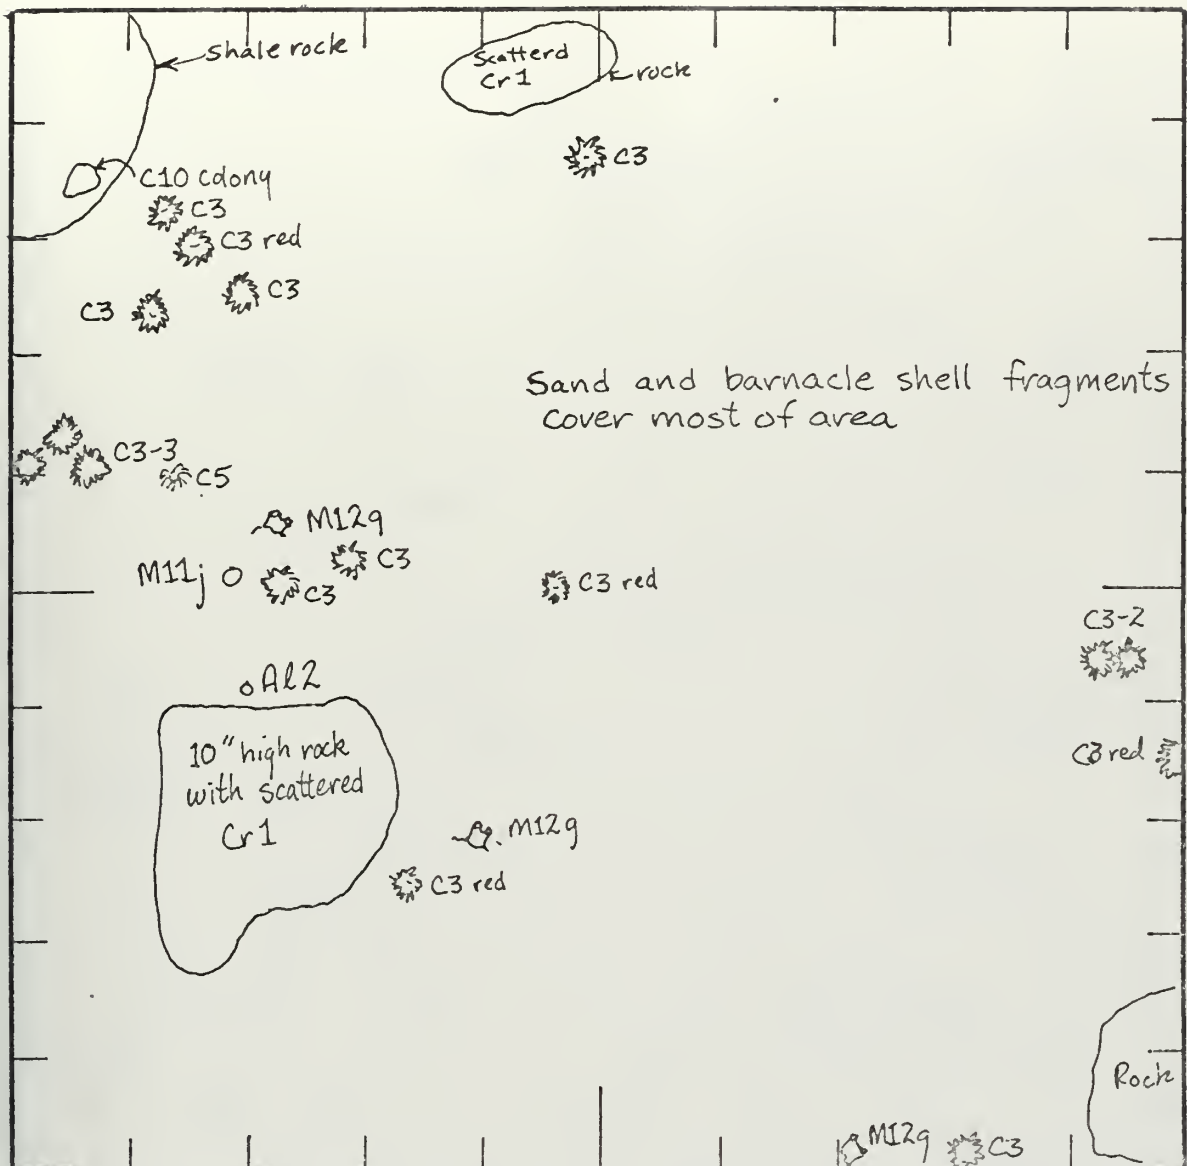 shale rock
Scatterd
Cr1
rock
C3
C10 colony
C3
C3 red
C3
C3
Sand and barnacle shell fragments
cover most of area
C3-3
C5
M12g
M11j
C3
C3
C3 red
C3-2
Al2
10" high rock
with scattered
Cr1
C3 red
M12g
C3 red
Rock
M12g
C3